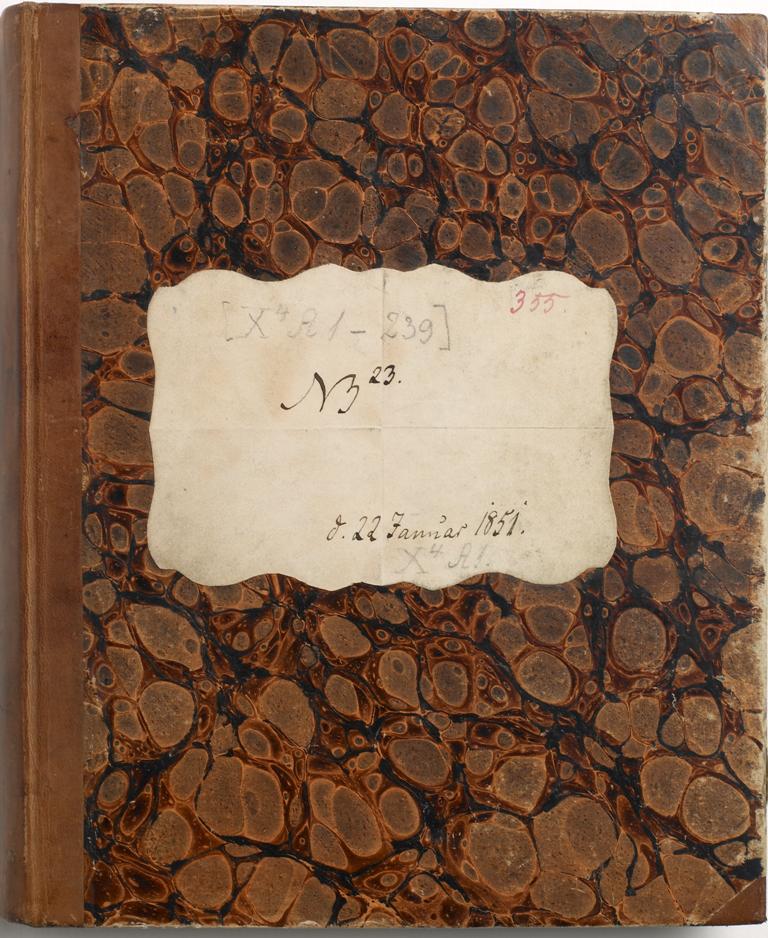 355.
[X⁴ A 1 – 239]
NB²³.
d. 22 Januar 1851.
X⁴ A 1.